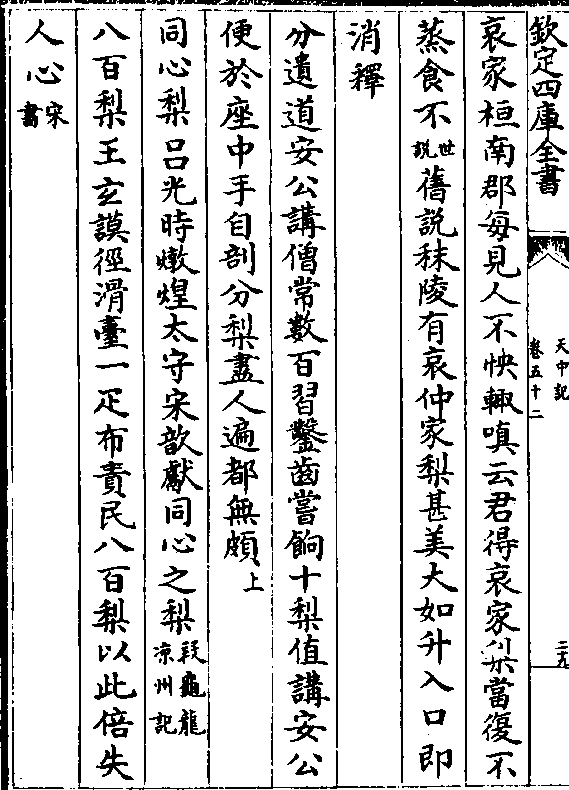 欽定四庫全書
天中記
卷五十二
二九
哀家桓南郡每見人不怏輙嗔云君得哀家梨當復不
蒸食不世說舊說秣陵有哀仲家梨甚美大如升入口即
消釋
分遺道安公講僧常數百習鑿齒嘗餉十梨值講安公
便於座中手自剖分梨盡人遍都無頗上
同心梨呂光時燉煌太守宋歆獻同心之梨段龜龍凉州記
八百梨王玄謨徑滑臺一疋布責民八百梨以此倍失
人心宋書